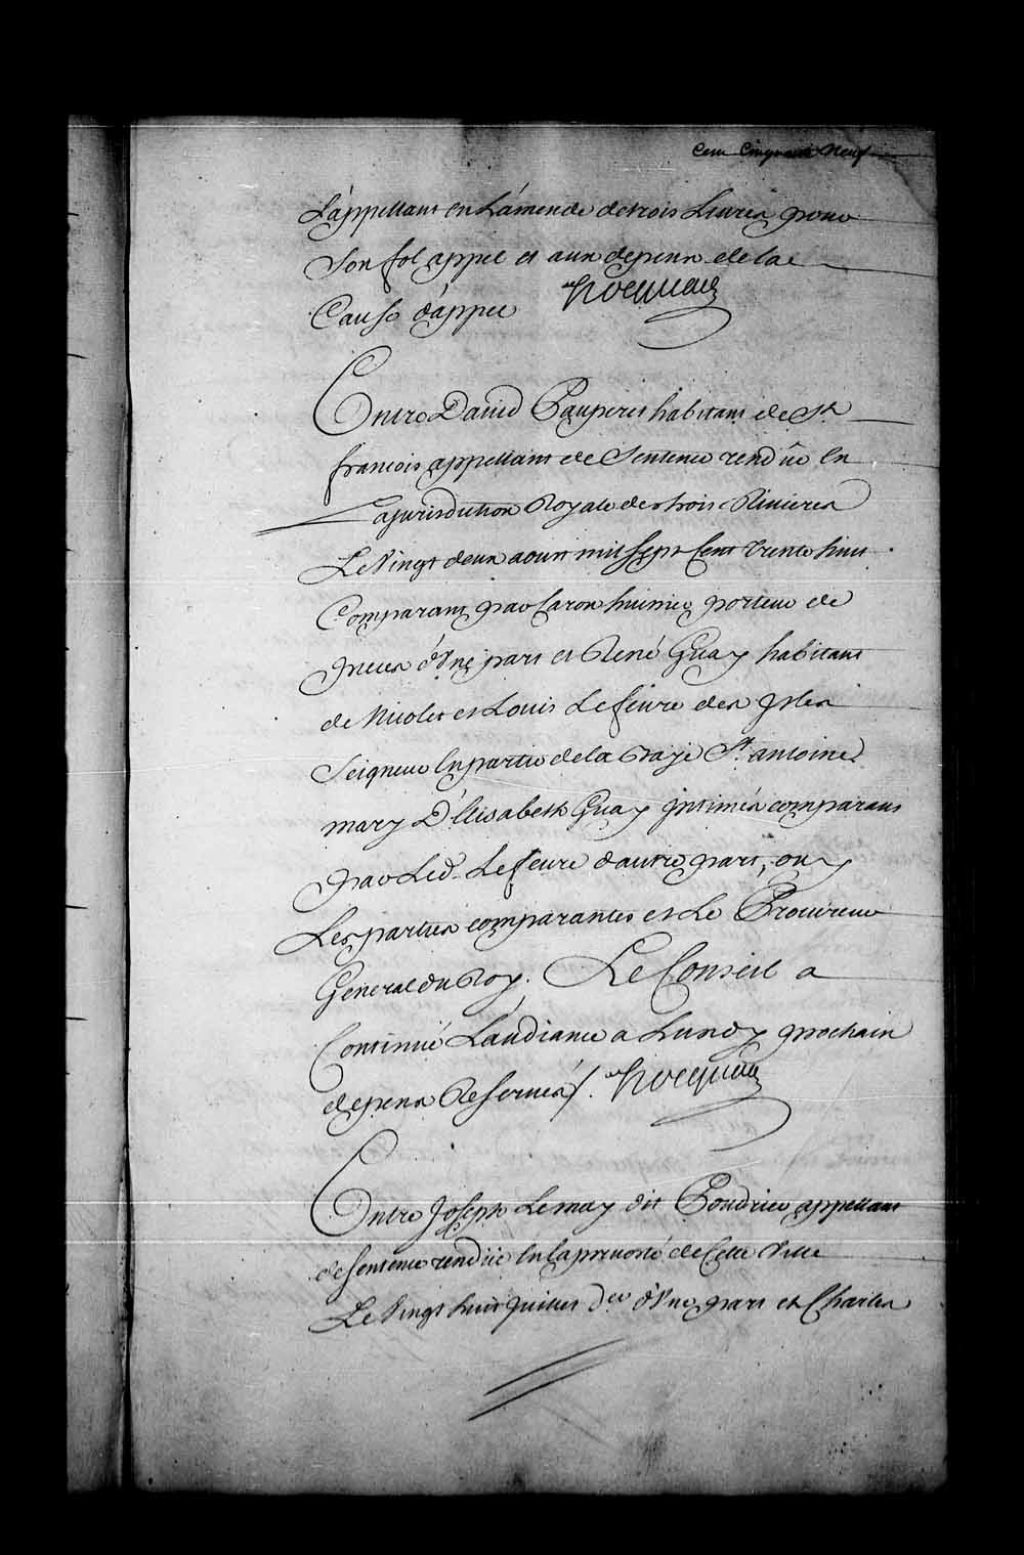 Cent Cinquante Neuf
L'appellant en L'amende de trois Livres pour
Son fol appel et aux depens de la
Cause d'appel Hocquart
Entre David Pauperet habitant de St
francois appellant de Sentence rendüe en
La jurisdiction Royale des trois Rivieres
Le Vingt deux aoust mil Sept Cent trente huit
Comparant par huissier porteur de
pieces d'Une part et René Guay habitant
de Nicolet et Louis Lefeivre des Isles
Seigneur en partie de la Baye St antoine
mary D'Elisabeth Guay jntimés comparans
par Led. Lefevre d'autre part, ouy
Les parties comparantes et Le Procureur
General du Roy. Le Conseil a
Continué L'audiance a Lundy prochain
depens Reservés/. Hocquart
Entre Joseph Lemay dit Poudrier appellant
de Sentence rendüe en La prevosté de Cette Ville
Le Vingt huit Juillet der d'Une part et Charles